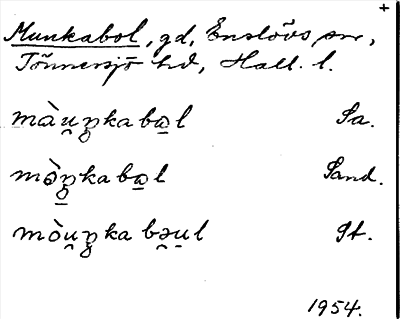 +
Munkabol, gd, Enslövs sn,
Tönnersjö hd, Hall. l.
màu̯ŋkabɷ̠l Sa.
mɷ̀ŋ̠kabɷ̠l Sand.
mòu̯ŋka bə̯u̠l St.
1954.